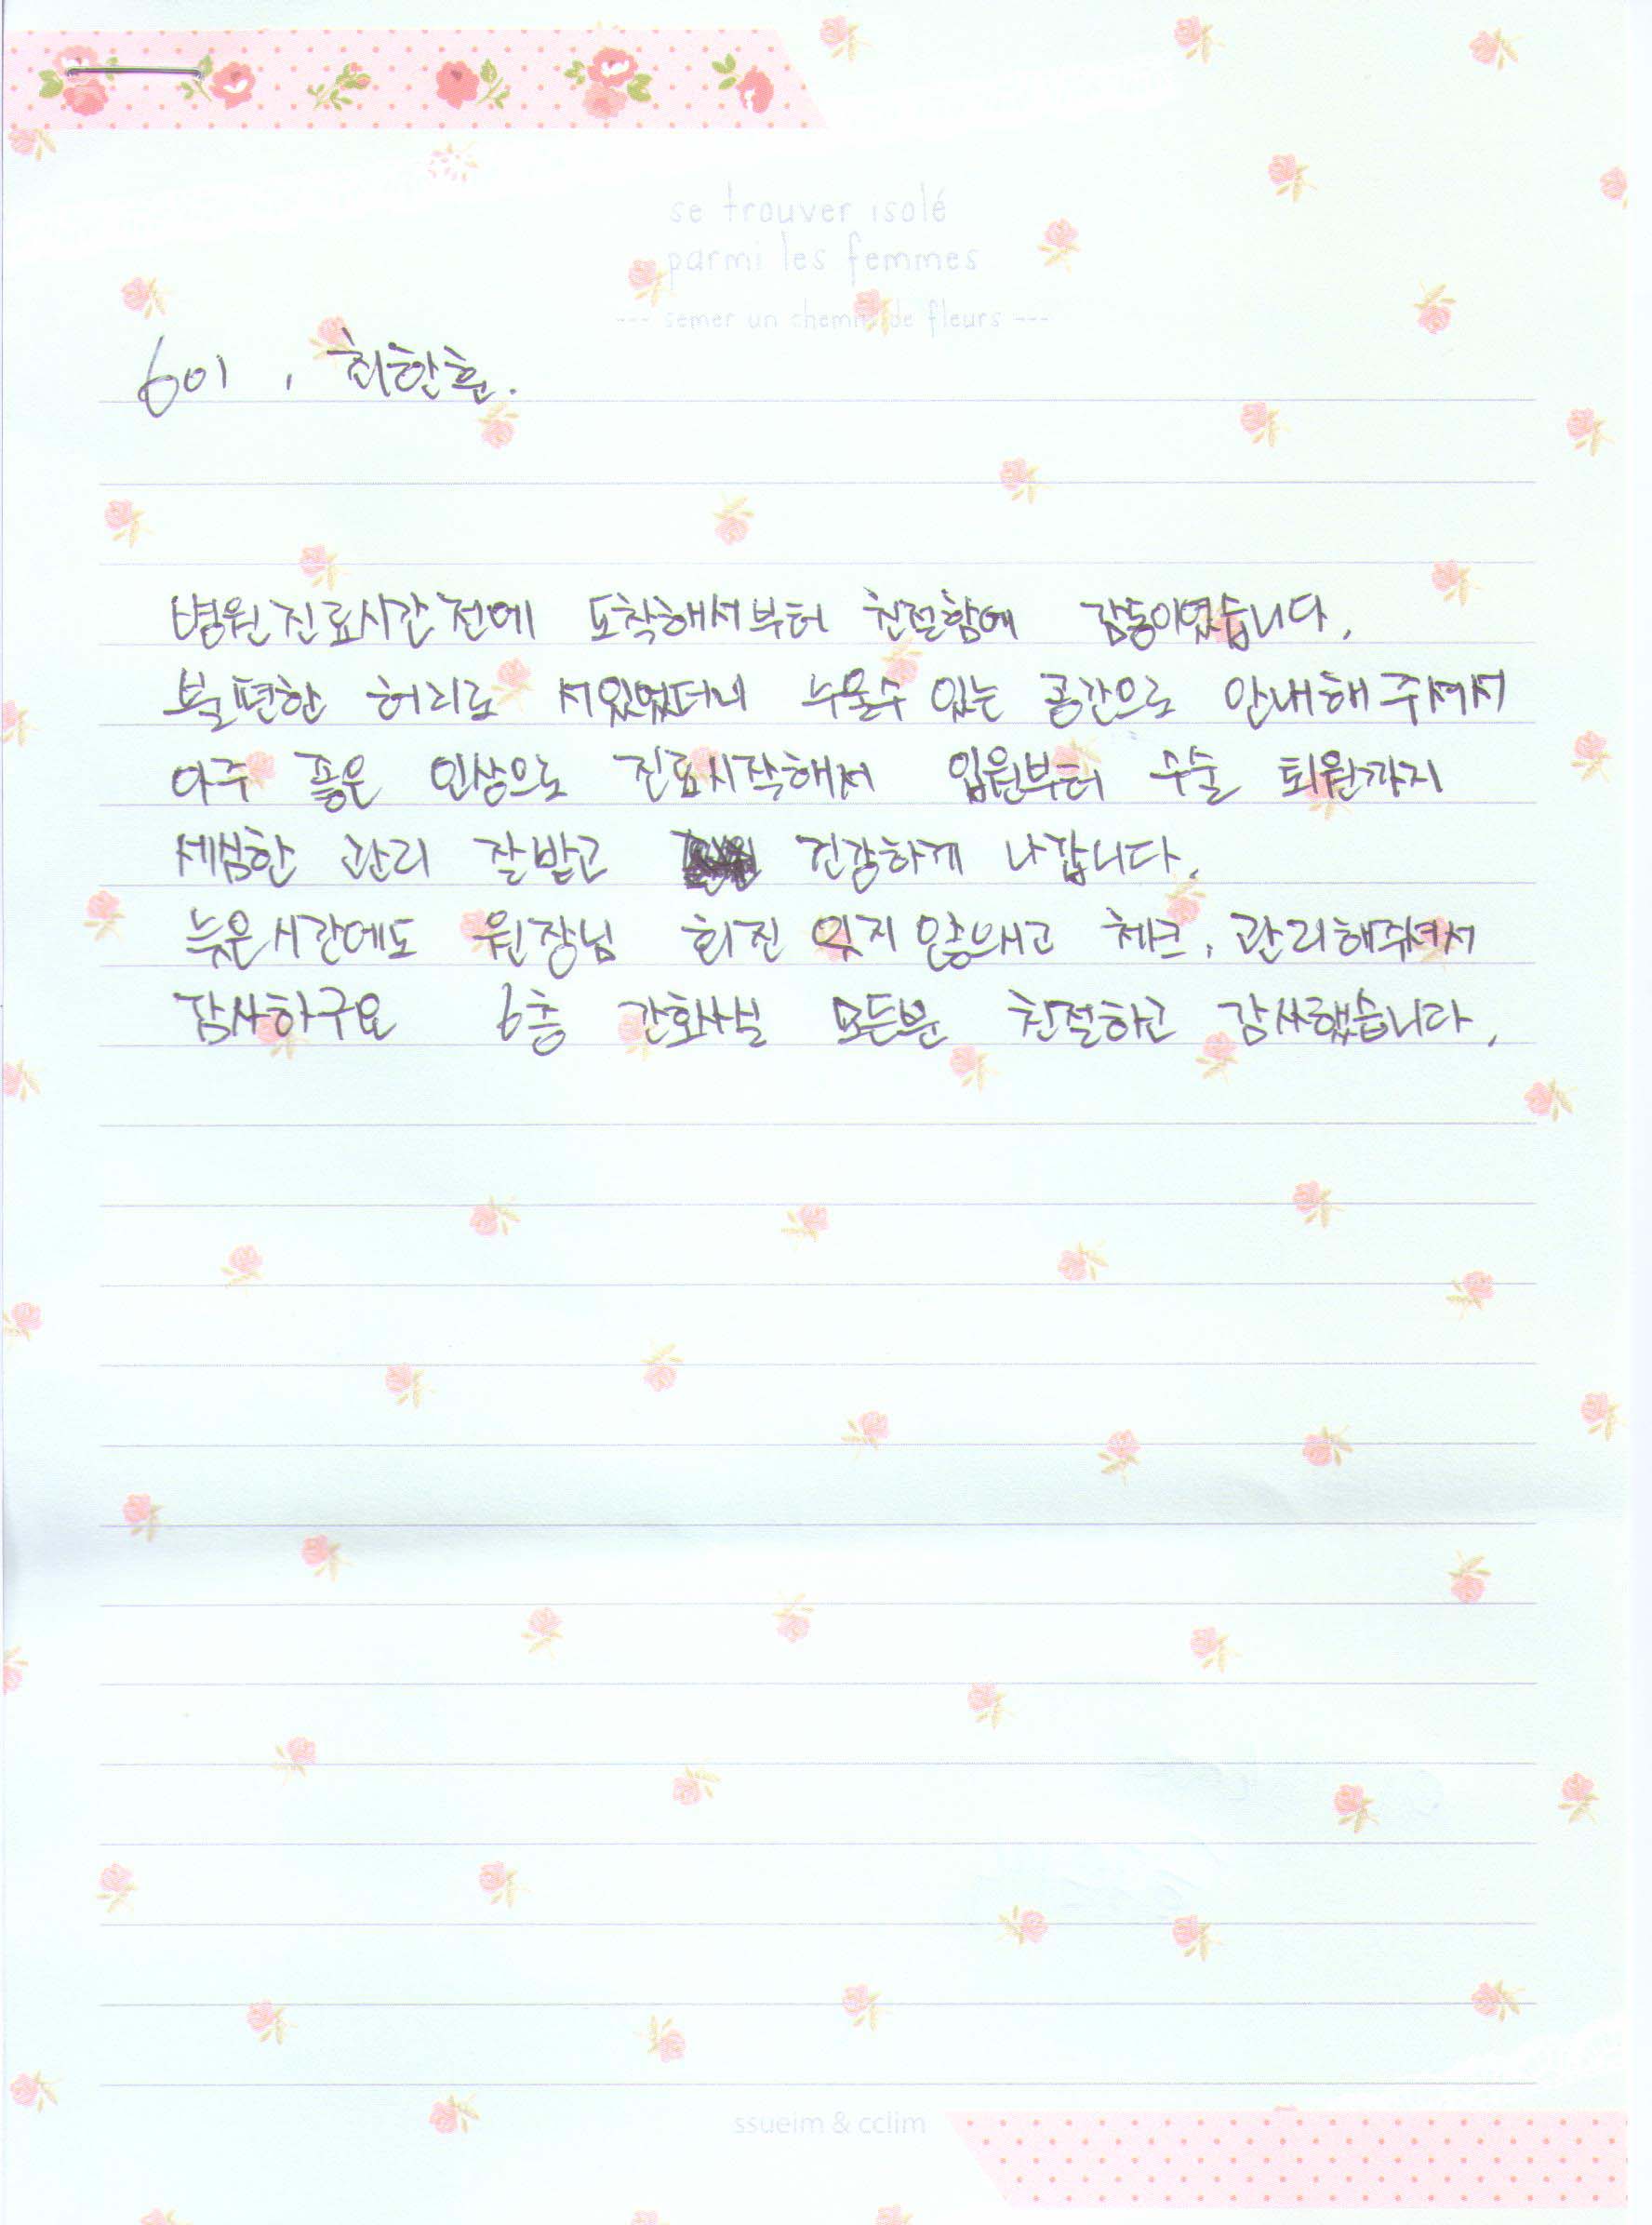 se trouver isolé
parmi les femmes
--- semer un chemin de fleurs ---
601, 최한훈.
병원진료시간전에 도착해서부터 친절함에 감동이였습니다.
불편한 허리로 서있었더니 누울수 있는 공간으로 안내해주셔서
아주 좋은 인상으로 진료시작해서 입원부터 수술 퇴원까지
세심한 관리 잘받고 건강하게 나갑니다.
늦은시간에도 원장님 회진 잊지않으시고 체크, 관리해주셔서
감사하구요 6층 간호사님 모든분 친절하고 감사했습니다.
ssueim & cclim